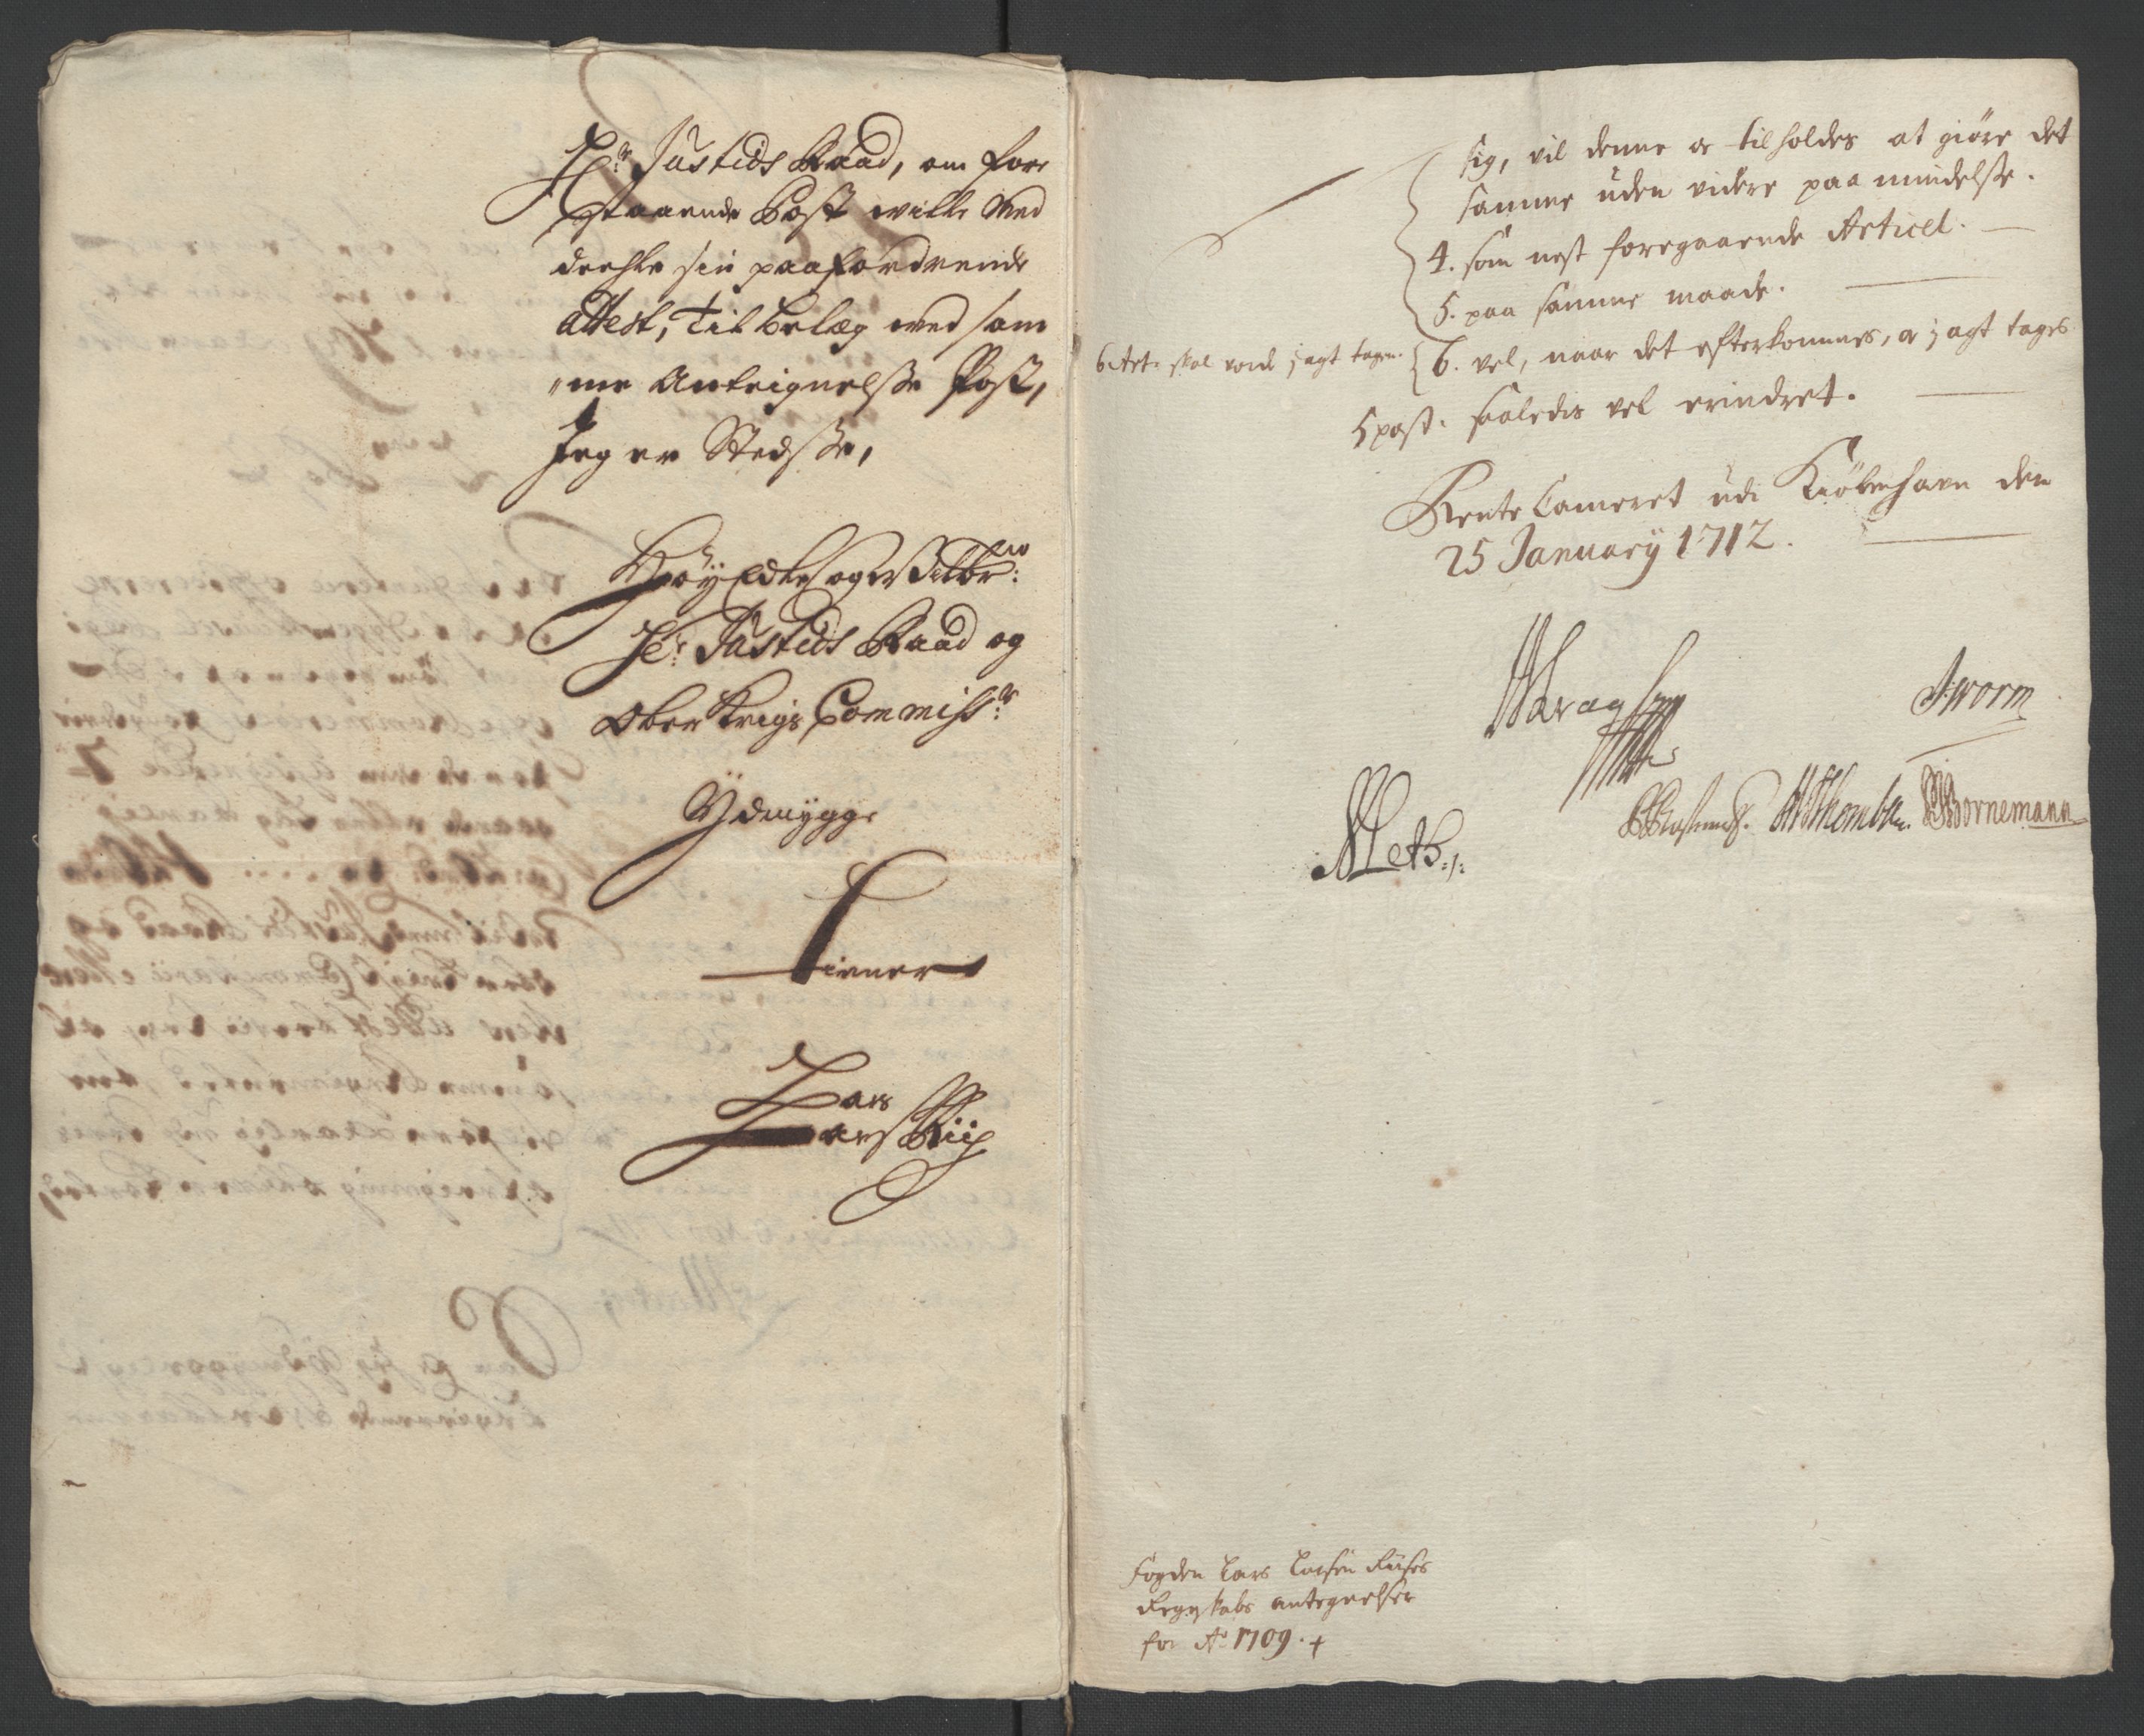 Hr: Justids Raad, om fore
staaende Post wille Med
deelle sin paafordrende
attest, til belæg ved sam
"me Anteignelse Post,
Jeg er Stedsse,
Høy Edle og
Hr: Justids Raad og
Ober Krigs Commiss:r
Ydmygge
Tiener
Lars
sig, vil denne og tilholdes at giøre det
samme uden videre paamindelse.
4. som nest foregaaende Articel.
5. paa samme maade.
6 Art: skal vorde j agt tagen.
6. vel, naar det efterkommes, og j agt tages
5 post. saaledis vel erindret.
Rente Cammeret udi Kiöbenhavn den
25 January 1712.
Worm
Bornemann
Fogden Lars
Regnskabs antegnelser
for Ao 1709. +